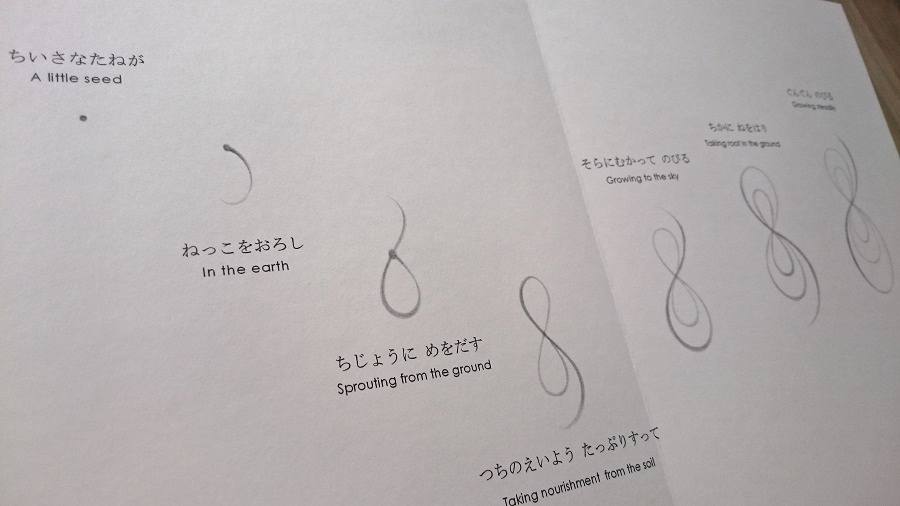 ちいさなたねが
A little seed
ねっこをおろし
In the earth
ちじょうに めをだす
Sprouting from the ground
つちのえいよう たっぷりすって
Taking nourishment from the soil
そらにむかって のびる
Growing to the sky
ちかに ねをはり
Taking root in the ground
ぐんぐん のびる
Growing steadily